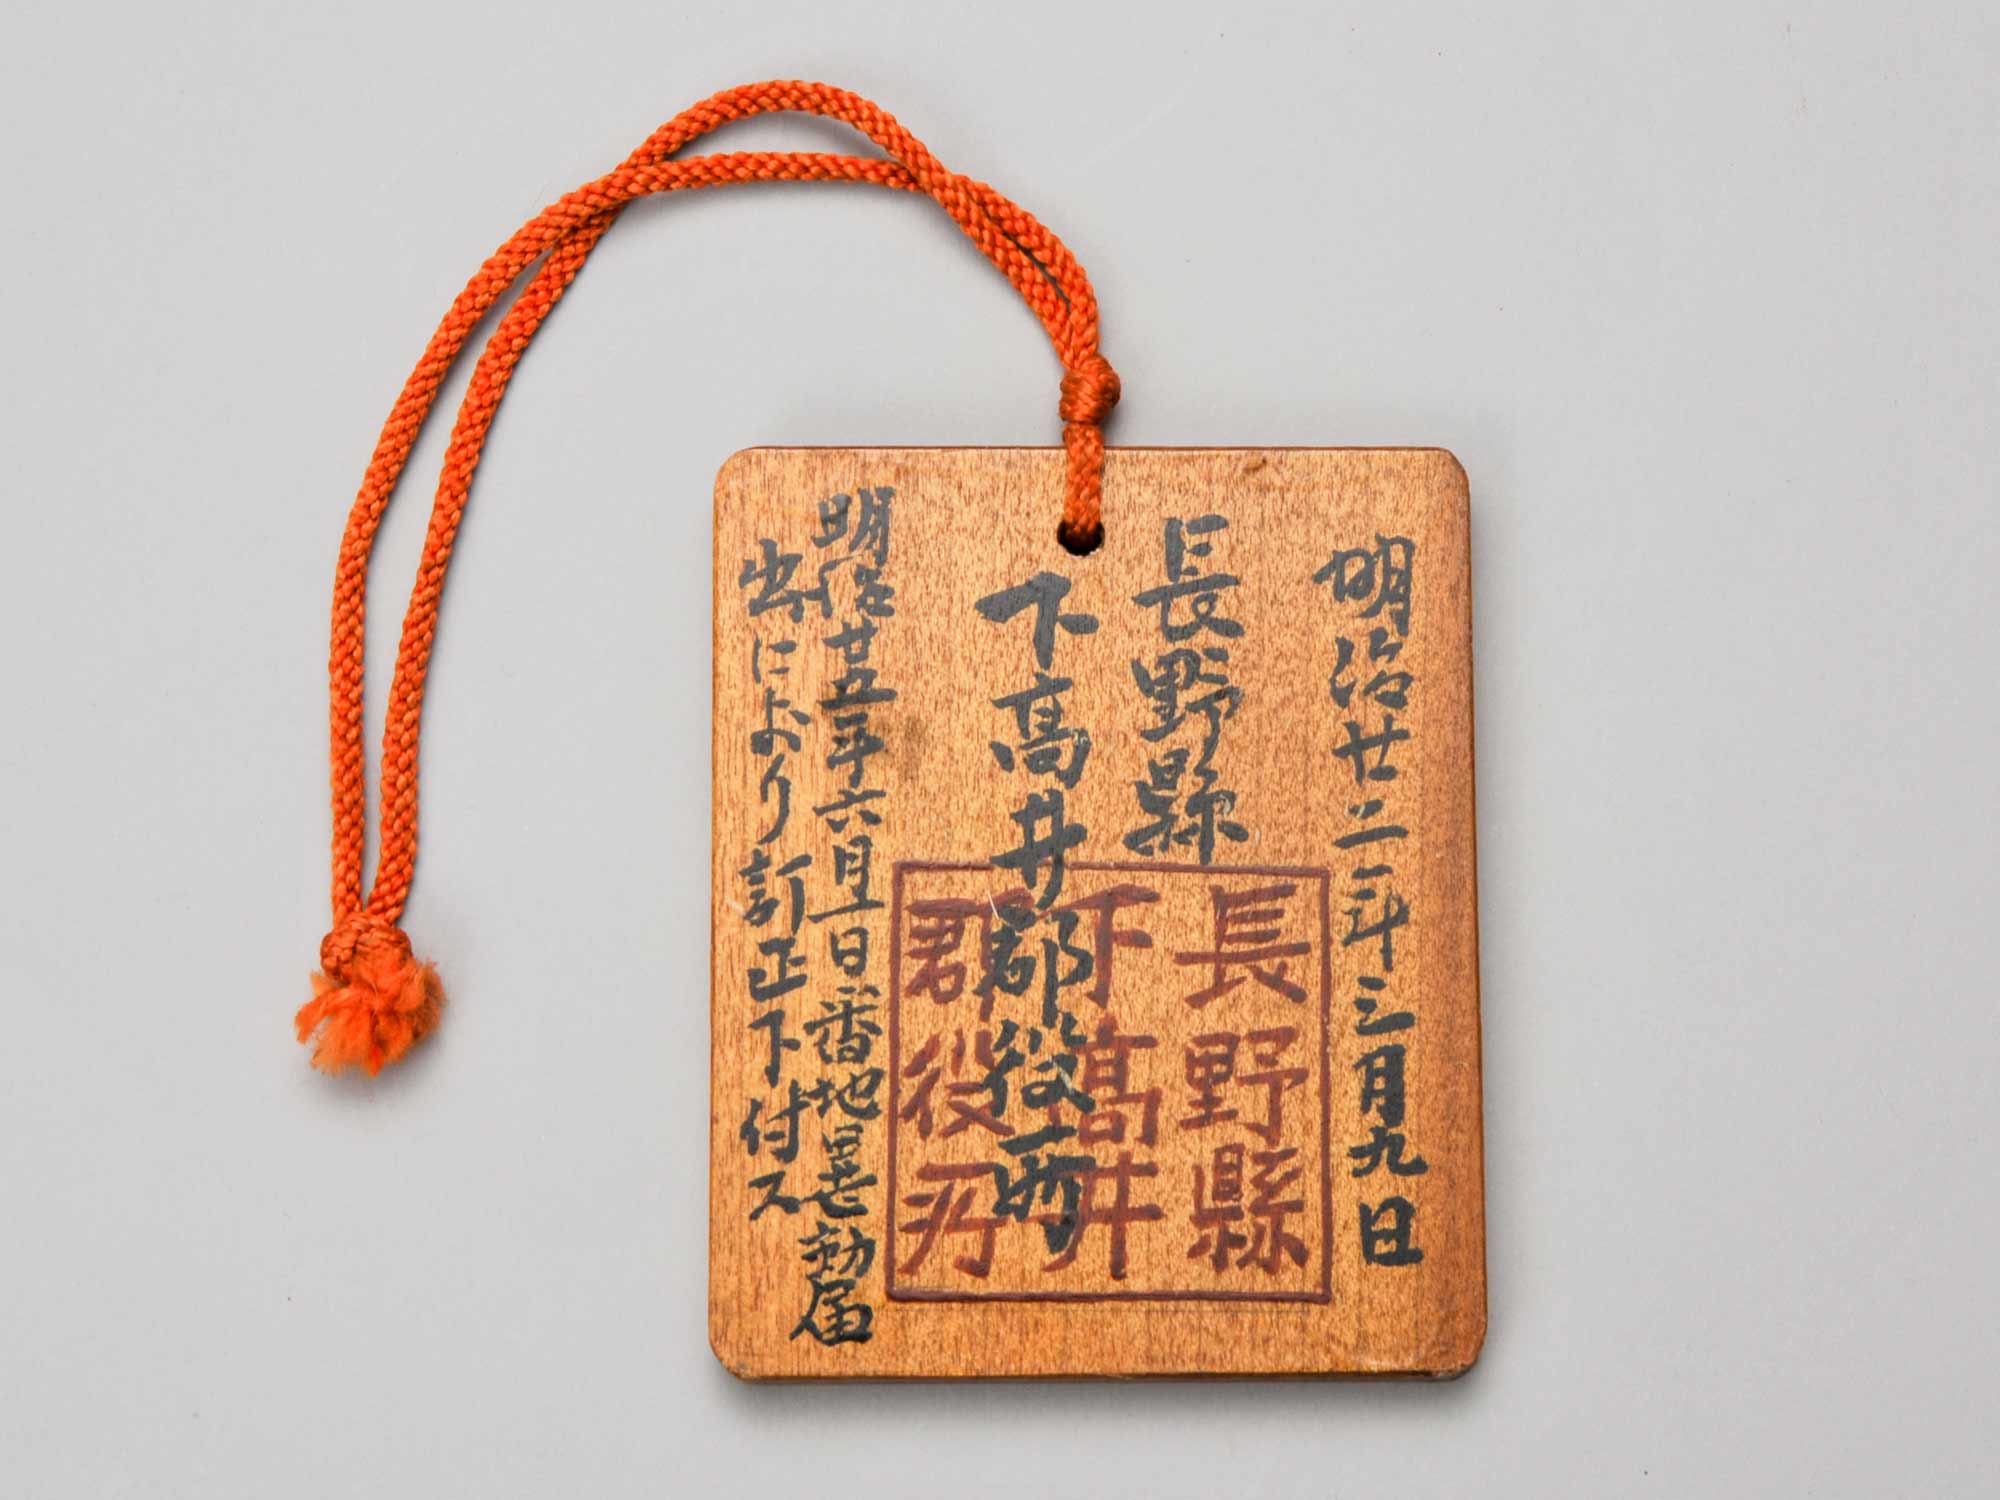 明治廿二年三月九日
長野縣
下高井郡役所
長野縣
下高井
郡役所
明治廿五年六月十一日番地異動届
出ニより訂正下付ス